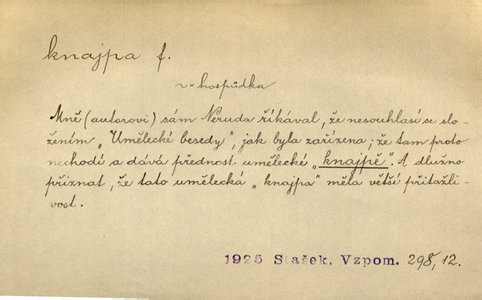 knajpa f.
v= hospůdka
Mně (autorovi) sám Neruda říkával, že nesouhlasí se slo-
žením „Umělecké besedy", jak byla zařízena; že tam proto
nechodí a dává přednost umělecké „knajpě". A dlužno
přiznat, že tato umělecká „knajpa" měla větší přitažli-
vost.
1925 Stašek, Vzpom. 298, 12.